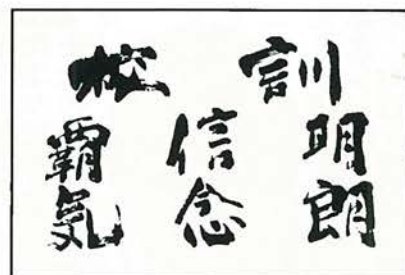 校訓
明朗
信念
覇気